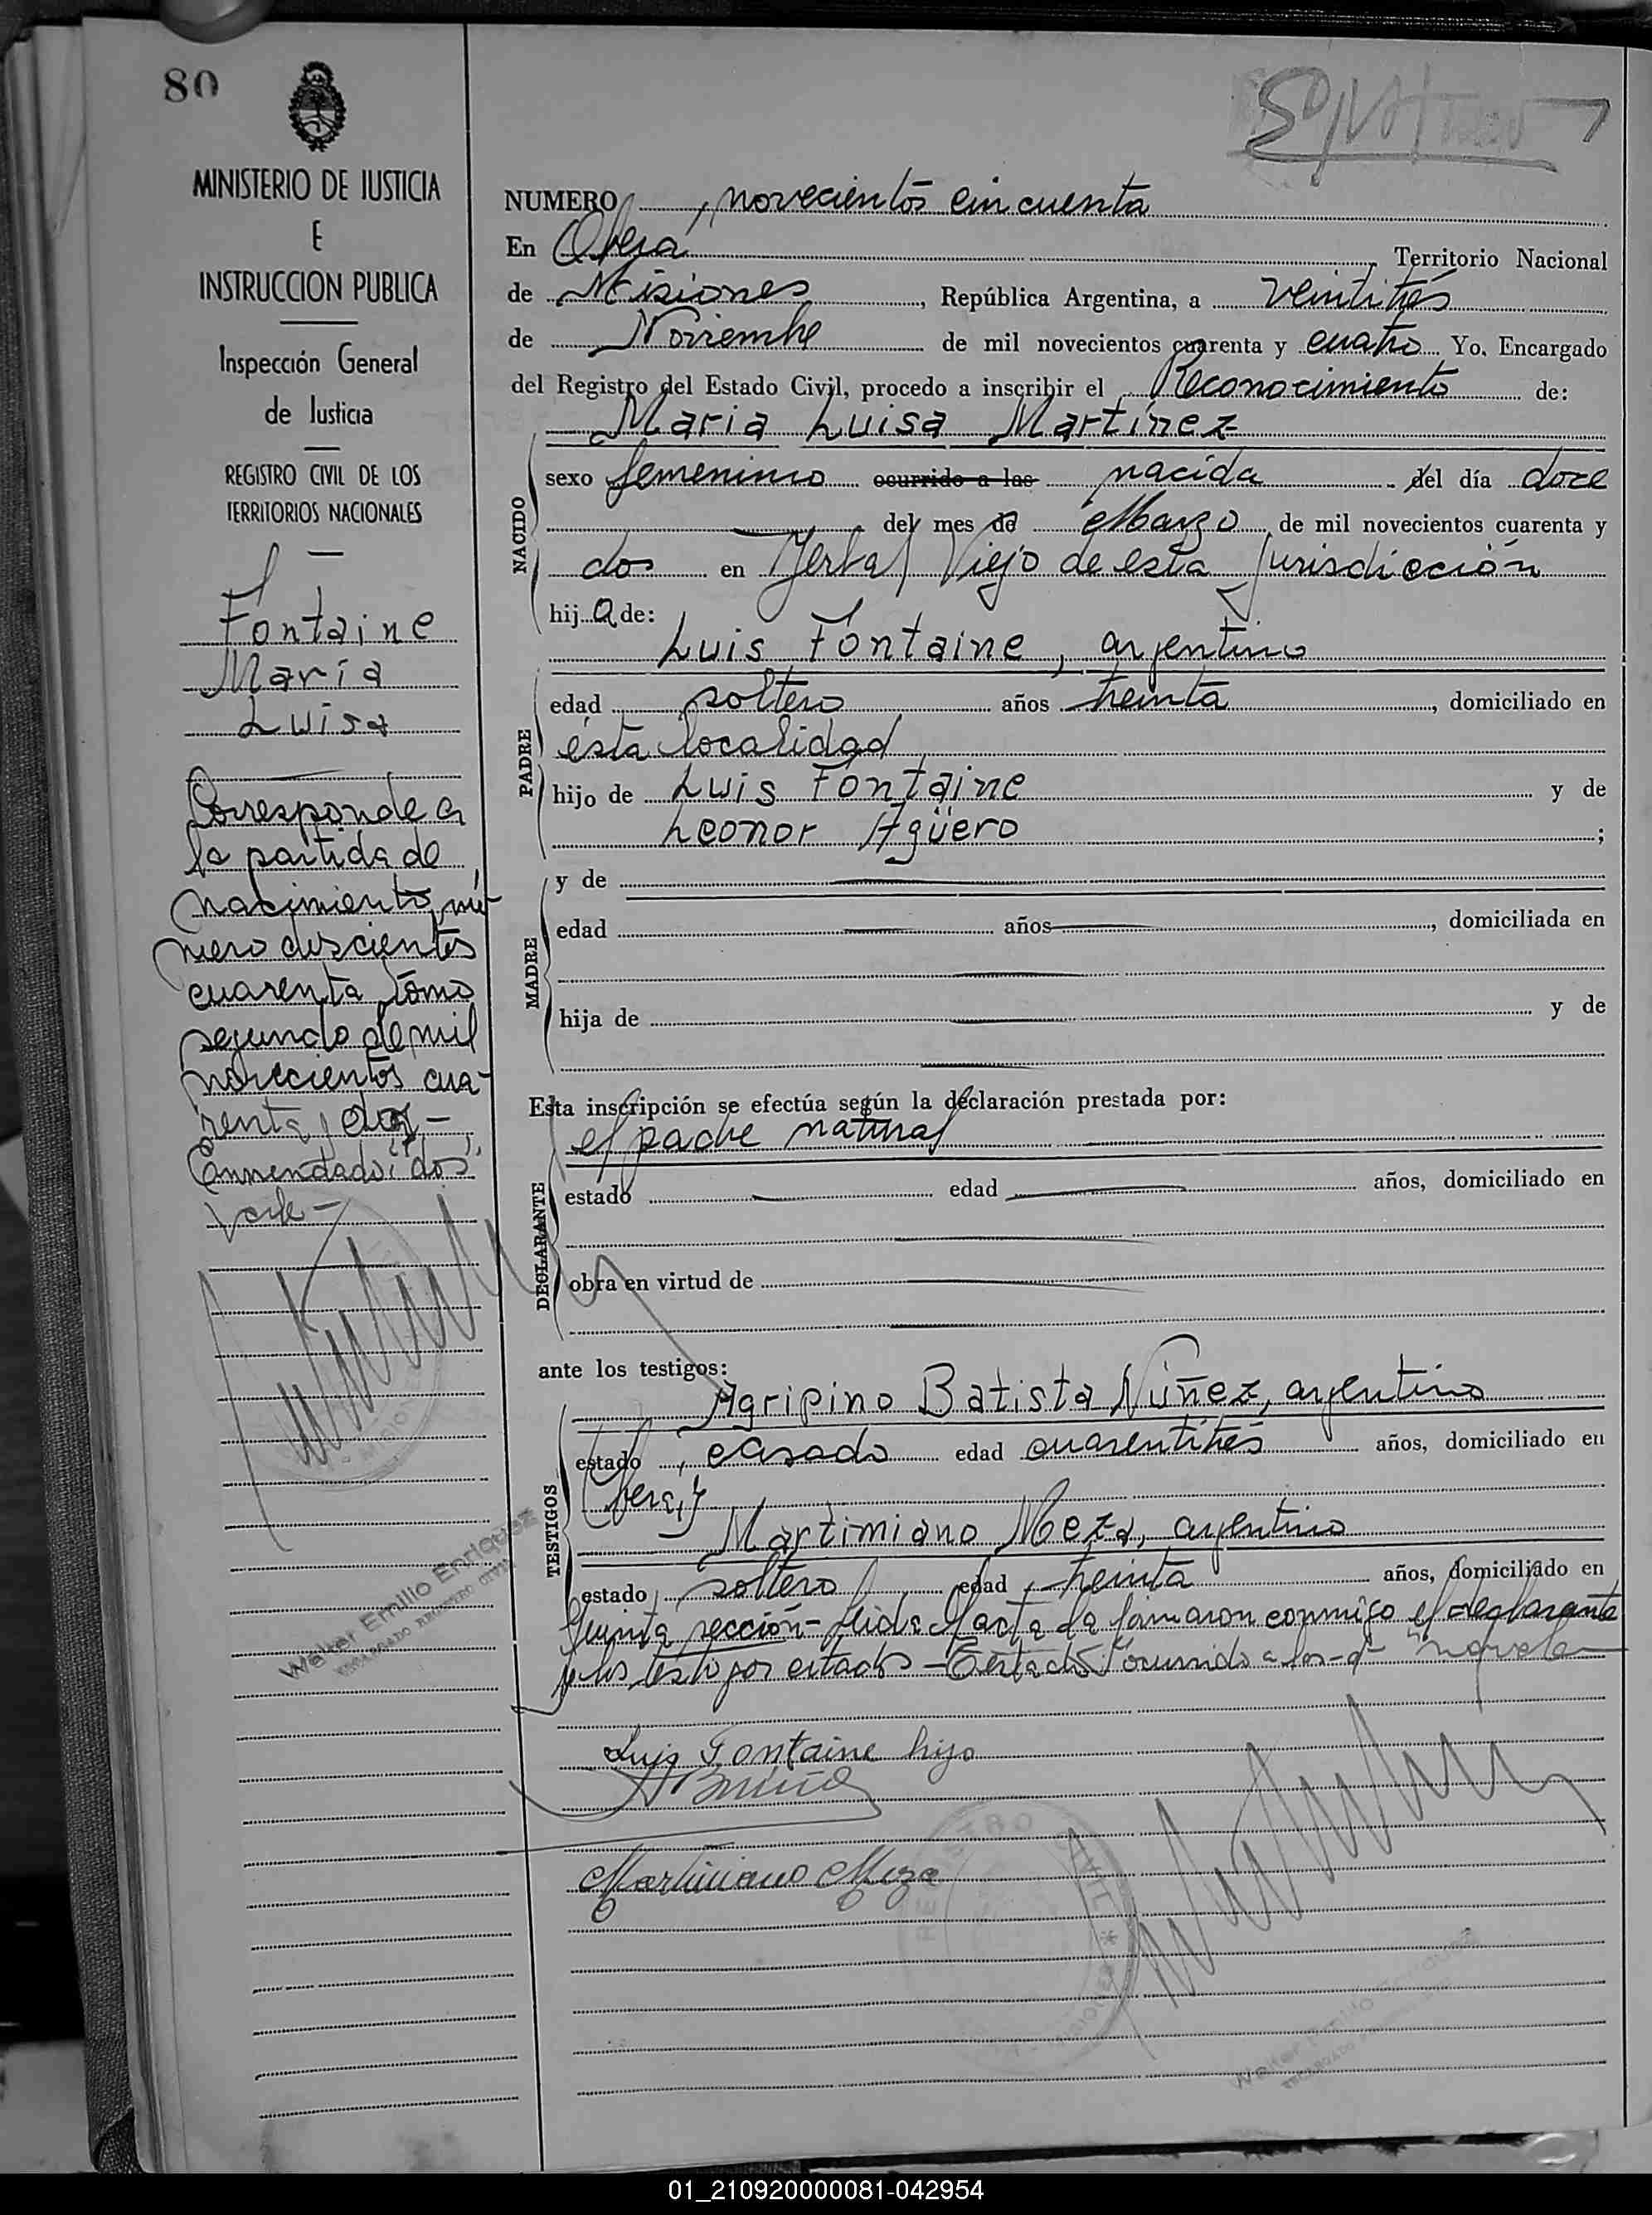 80
MINISTERIO DE JUSTICIA
E
INSTRUCCION PUBLICA
Inspección General
de Justicia
REGISTRO CIVIL DE LOS
TERRITORIOS NACIONALES
Fontaine
María
Luisa
Corresponde a
la partida de
nacimiento nú-
mero duscientos
cuarenta, tomo
segundo de mil
novecientos cua-
renta y dos -
Enmendado: "dos"
vale -
Walter Emilio Enriquez
ENCARGADO REGISTRO CIVIL
NUMERO novecientos cincuenta
En Oberá Territorio Nacional
de Misiones, República Argentina, a veintitrés
de Noviembre de mil novecientos cuarenta y cuatro Yo, Encargado
del Registro del Estado Civil, procedo a inscribir el Reconocimiento de:
Maria Luisa Martínez
NACIDO
sexo femenino ocurrido a las nacida del día doce
del mes de Marzo de mil novecientos cuarenta y
dos en Yerbal Viejo de esta Jurisdicción
hija de:
PADRE
Luis Fontaine, argentino
edad soltero años treinta, domiciliado en
ésta localidad
hijo de Luis Fontaine y de
Leonor Agüero ;
MADRE
y de
edad años , domiciliada en
hija de y de
Esta inscripción se efectúa según la declaración prestada por:
DECLARANTE
el padre natural
estado edad años, domiciliado en
obra en virtud de
ante los testigos:
TESTIGOS
Agripino Batista Núñez, argentino
estado casado edad cuarentitrés años, domiciliado en
Oberá, y
Martimiano Meza, argentino
estado soltero edad treinta años, domiciliado en
Quinta sección - Leida el acta la firmaron conmigo el declarante
y los testigos citados - Testado "ocurrido a las-d" "no vale
Luis Fontaine hijo
Martiniano Meza
REGISTRO CIVIL
Walter Emilio Enriquez
01_210920000081-042954